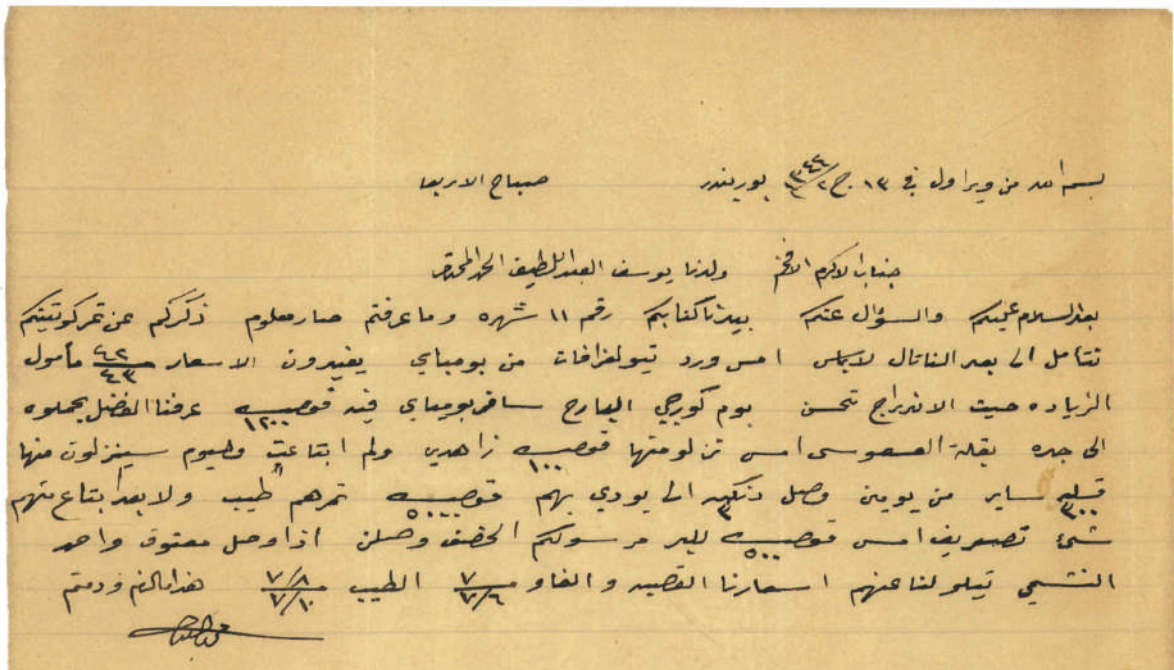 بسم الله من ويراول في ١٣ ج٢ ١٣٤٢ بوربندر صباح الاربعا
جناب الاكرم الافخم ولدنا يوسف العبد اللطيف الحمد المحترم
بعد السلام عليكم والسؤال عنكم بيدنا كتابكم رقم ١١ شهره وما عرفتم صار معلوم ذكركم عن تمركوتيتكم
نتأمل الى بعد الناتال لاباس امس ورد تيولغرافات من بومباي يفيدون الاسعار ٤٢ ٤٣ مأمول
الزياده حيث الاندراج تحسن بوم كورجي البارح سافر بومباي فيه قوصره ١٢٠٠ عرفنا الفضل يحملوه
الى جده بقلة امس نزلو منها قوصره ١٠٠ زاهدي ولم ابتاعت وهليوم سينزلون منها
قسليه ٣٠٠ ساير من يومين وصل ٣ الى يودي بهم قوصره ٥٠٠٠ تمرهم طيب ولا بعد ابتاع منهم
شيئ تصريف امس قوصره ٥٠٠ للبر مرسولكم الحضف وصلن اذا وصل معتوق واحمد
النشمي تيلو لنا عنهم اسعارنا القصيد والفاو ٧ ٧/٦ الطيب ٧/٨ ٧/١٠ هذا مالزم ودمتم